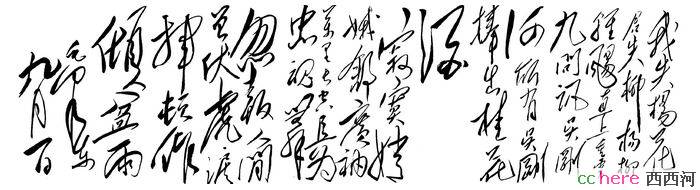 我失杨花
君失柳杨柳
轻飏直上重霄
九问讯吴刚
何所有吴刚
捧出桂花
酒
寂寞嫦
娥舒广袖
万里长空且为
忠魂舞
忽报人间
曾伏虎泪
飞顿作
倾盆雨
毛泽东
九月
cchere 西西河